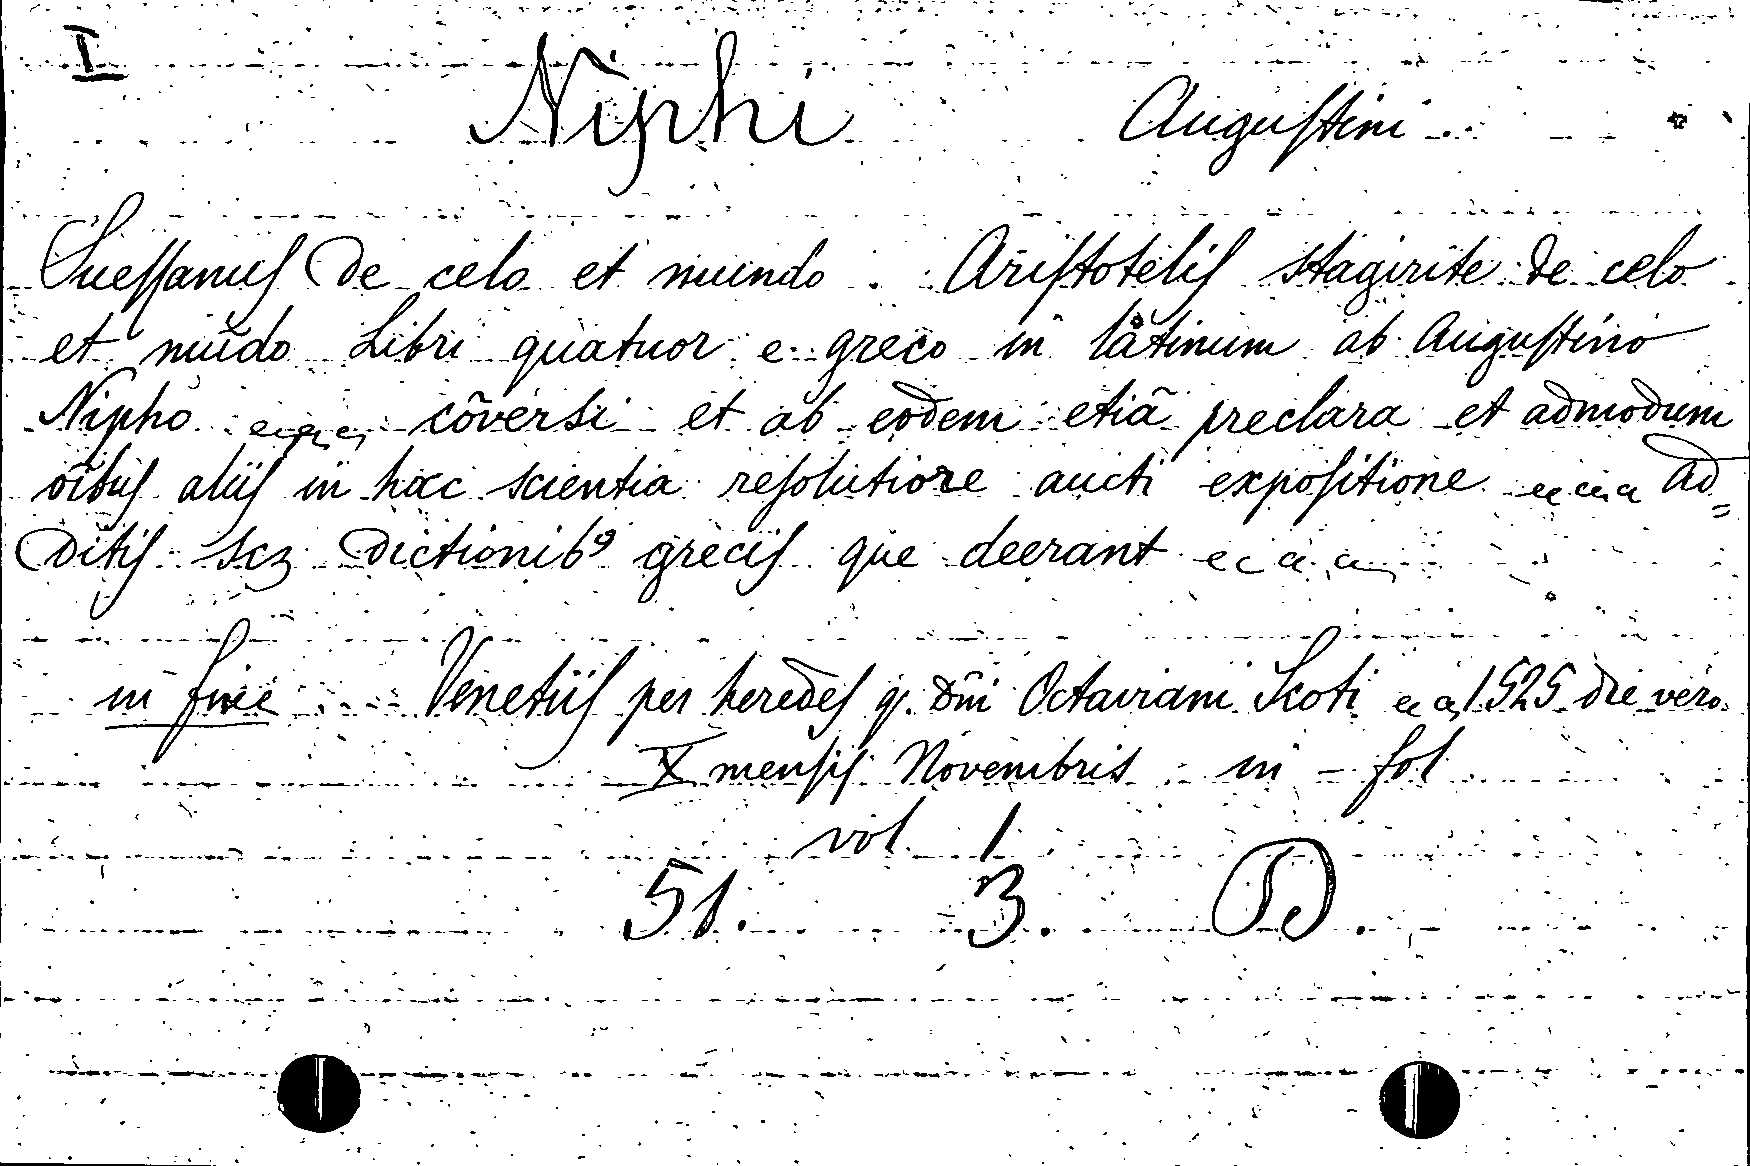 I
Niphi Augustini
Suessanus de celo et mundo . Aristotelis stagirite de celo
et mũdo Libri quatuor e greco in latinum ab Augustino
Nipho cõversi et ab eodem etiã preclara et admodum
oĩbus aliis in hac scientia resolutiore aucti expositione ad=
ditis scz dictionib⁹ grecis que deerant
in fine Venetiis per heredes q. dñi Octaviani Scoti 1525 die vero
X mensis Novembris in - fol
vol 1
51. 3. D.